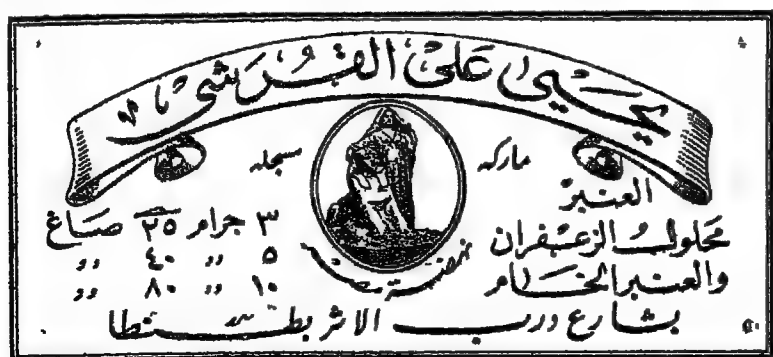 يحيى على القرشى
ماركه مسجله
نهضة مصر
العنبر
محلول الزعفران
والعنبر الخام
٣ جرام ٢٥ صاغ
٥ ٫٫ ٤٠ ٫٫
١٠ ٫٫ ٨٠ ٫٫
بشارع درب الاثر بطنطا